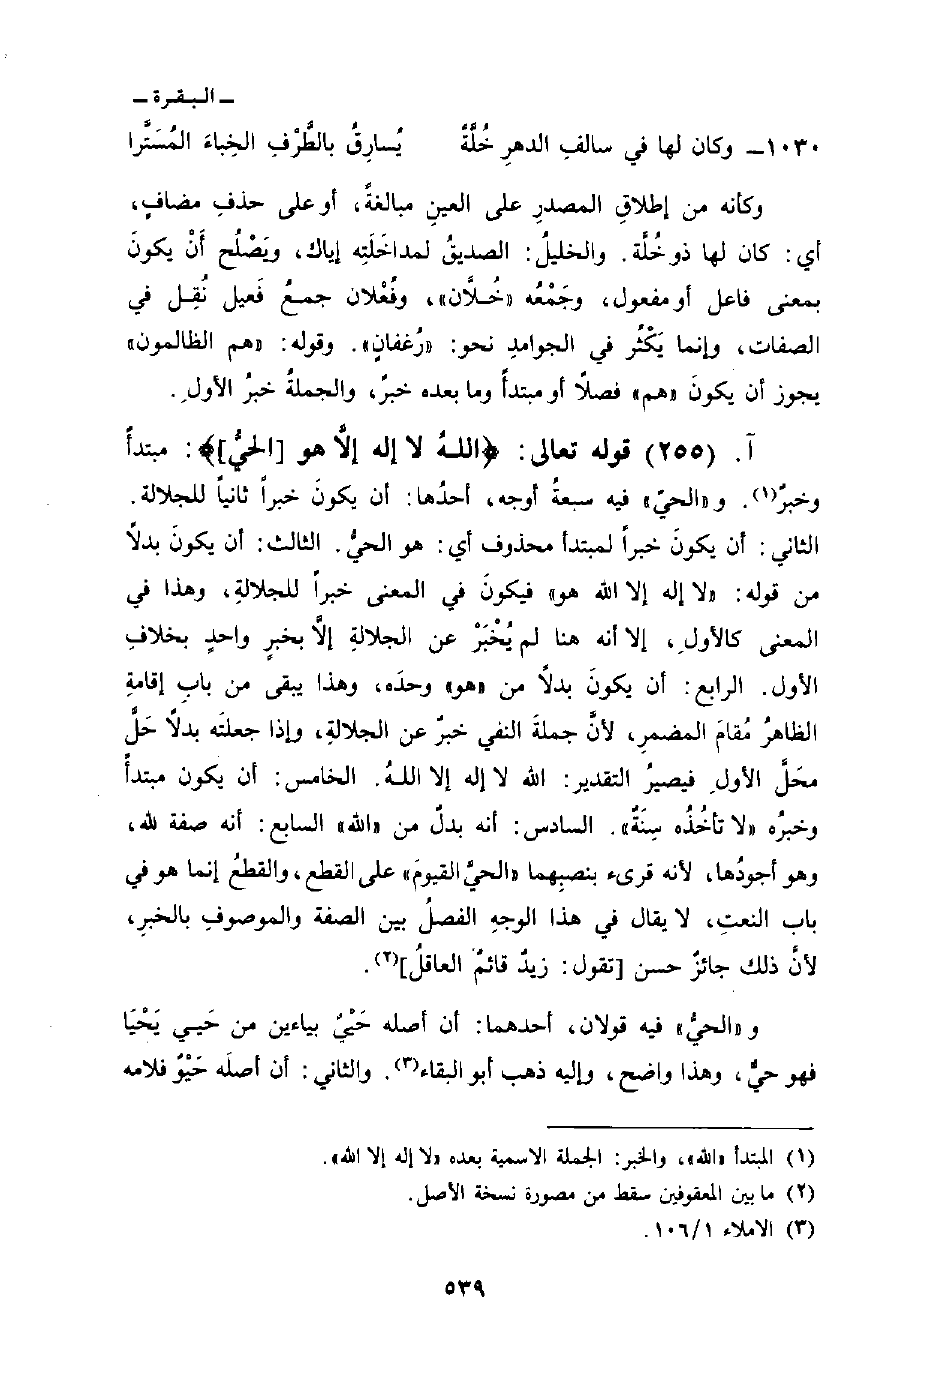 ـ البقرة ـ
١٠٣٠ـ وكان لها في سالفِ الدهرِ خُلَّةٌ يُسارِقُ بالطَّرْفِ الخِباءَ المُسَتَّرا
وكأنه من إطلاقِ المصدرِ على العينِ مبالغةً، أو على حذفِ مضافٍ،
أي: كان لها ذو خُلَّة. والخليلُ: الصديقُ لمداخَلَتِه إياك، ويَصْلُح أَنْ يكونَ
بمعنى فاعل أو مفعول، وجَمْعُه «خُلَّان»، وفُعْلان جمعُ فَعيل نُقِل في
الصفات، وإنما يَكْثُر في الجوامدِ نحو: «رُغفان». وقوله: «هم الظالمون»
يجوز أن يكونَ «هم» فصلاً أو مبتدأً وما بعده خبرٌ، والجملةُ خبرُ الأولِ.
آ. (٢٥٥) قوله تعالى: ﴿اللهُ لا إله إلَّا هو [الحيُّ]﴾: مبتدأٌ
وخبرٌ(١). و«الحيّ» فيه سبعةُ أوجه، أحدُها: أن يكونَ خبراً ثانياً للجلالة.
الثاني: أن يكونَ خبراً لمبتدأ محذوف أي: هو الحيُّ. الثالث: أن يكونَ بدلاً
من قوله: «لا إله إلا الله هو» فيكونَ في المعنى خبراً للجلالةِ، وهذا في
المعنى كالأولِ، إلا أنه هنا لم يُخْبَرْ عن الجلالةِ إلَّا بخبرٍ واحدٍ بخلافِ
الأول. الرابع: أن يكونَ بدلاً من «هو» وحدَه، وهذا يبقى من بابِ إقامةِ
الظاهرُ مُقامَ المضمرِ، لأنَّ جملةَ النفي خبرٌ عن الجلالةِ، وإذا جعلتَه بدلاً حَلَّ
محَلَّ الأولِ فيصيرُ التقدير: الله لا إله إلا اللهُ. الخامس: أن يكون مبتدأً
وخبرُه «لا تأخُذُه سِنَةٌ». السادس: أنه بدلٌ من «الله» السابع: أنه صفة لله،
وهو أجودُها، لأنه قرىء بنصبِهما «الحيَّ القيومَ» على القطع، والقطعُ إنما هو في
باب النعتِ، لا يقال في هذا الوجهِ الفصلُ بين الصفة والموصوفِ بالخبرِ،
لأنَّ ذلك جائزٌ حسن [تقول: زيدٌ قائمٌ العاقلُ](٢).
و«الحيُّ» فيه قولان، أحدهما: أن أصله حَيْيٌ بياءين من حَيي يَحْيَا
فهو حيٌّ، وهذا واضح، وإليه ذهب أبو البقاء(٣). والثاني: أن أصلَه حَيْوٌ فلامه
(١) المبتدأ «الله»، والخبر: الجملة الاسمية بعده «لا إله إلا الله».
(٢) ما بين المعقوفين سقط من مصورة نسخة الأصل.
(٣) الاملاء ١٠٦/١.
٥٣٩